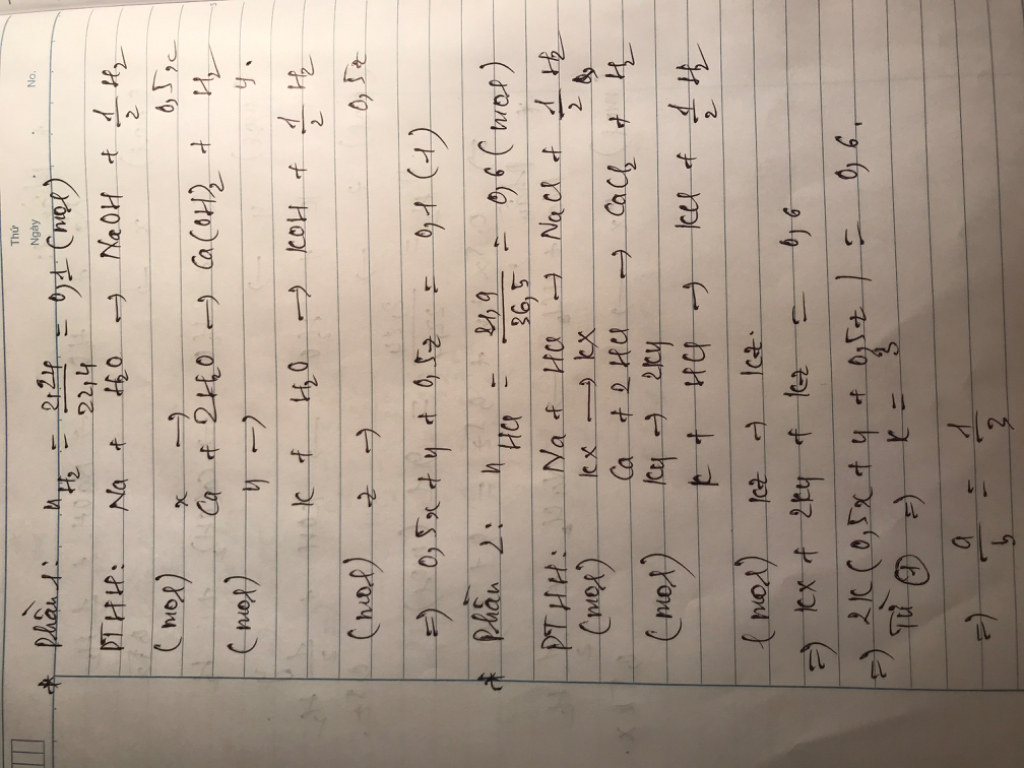 Thứ
Ngày
No.
* Phần 1: n H₂ = 2,24 / 22,4 = 0,1 (mol)
PTHH: Na + H₂O → NaOH + 1/2 H₂
(mol) x → 0,5x
Ca + 2H₂O → Ca(OH)₂ + H₂
(mol) y → y.
K + H₂O → KOH + 1/2 H₂
(mol) z → 0,5z
=> 0,5x + y + 0,5z = 0,1 (1)
* Phần 2: n HCl = 21,9 / 36,5 = 0,6 (mol)
PTHH: Na + HCl → NaCl + 1/2 H₂
(mol) kx → kx
Ca + 2HCl → CaCl₂ + H₂
(mol) ky → 2ky
K + HCl → KCl + 1/2 H₂
(mol) kz → kz.
=> kx + 2ky + kz = 0,6
=> 2k(0,5x + y + 0,5z) = 0,6.
Từ (1) => k = 3
=> a/b = 1/3